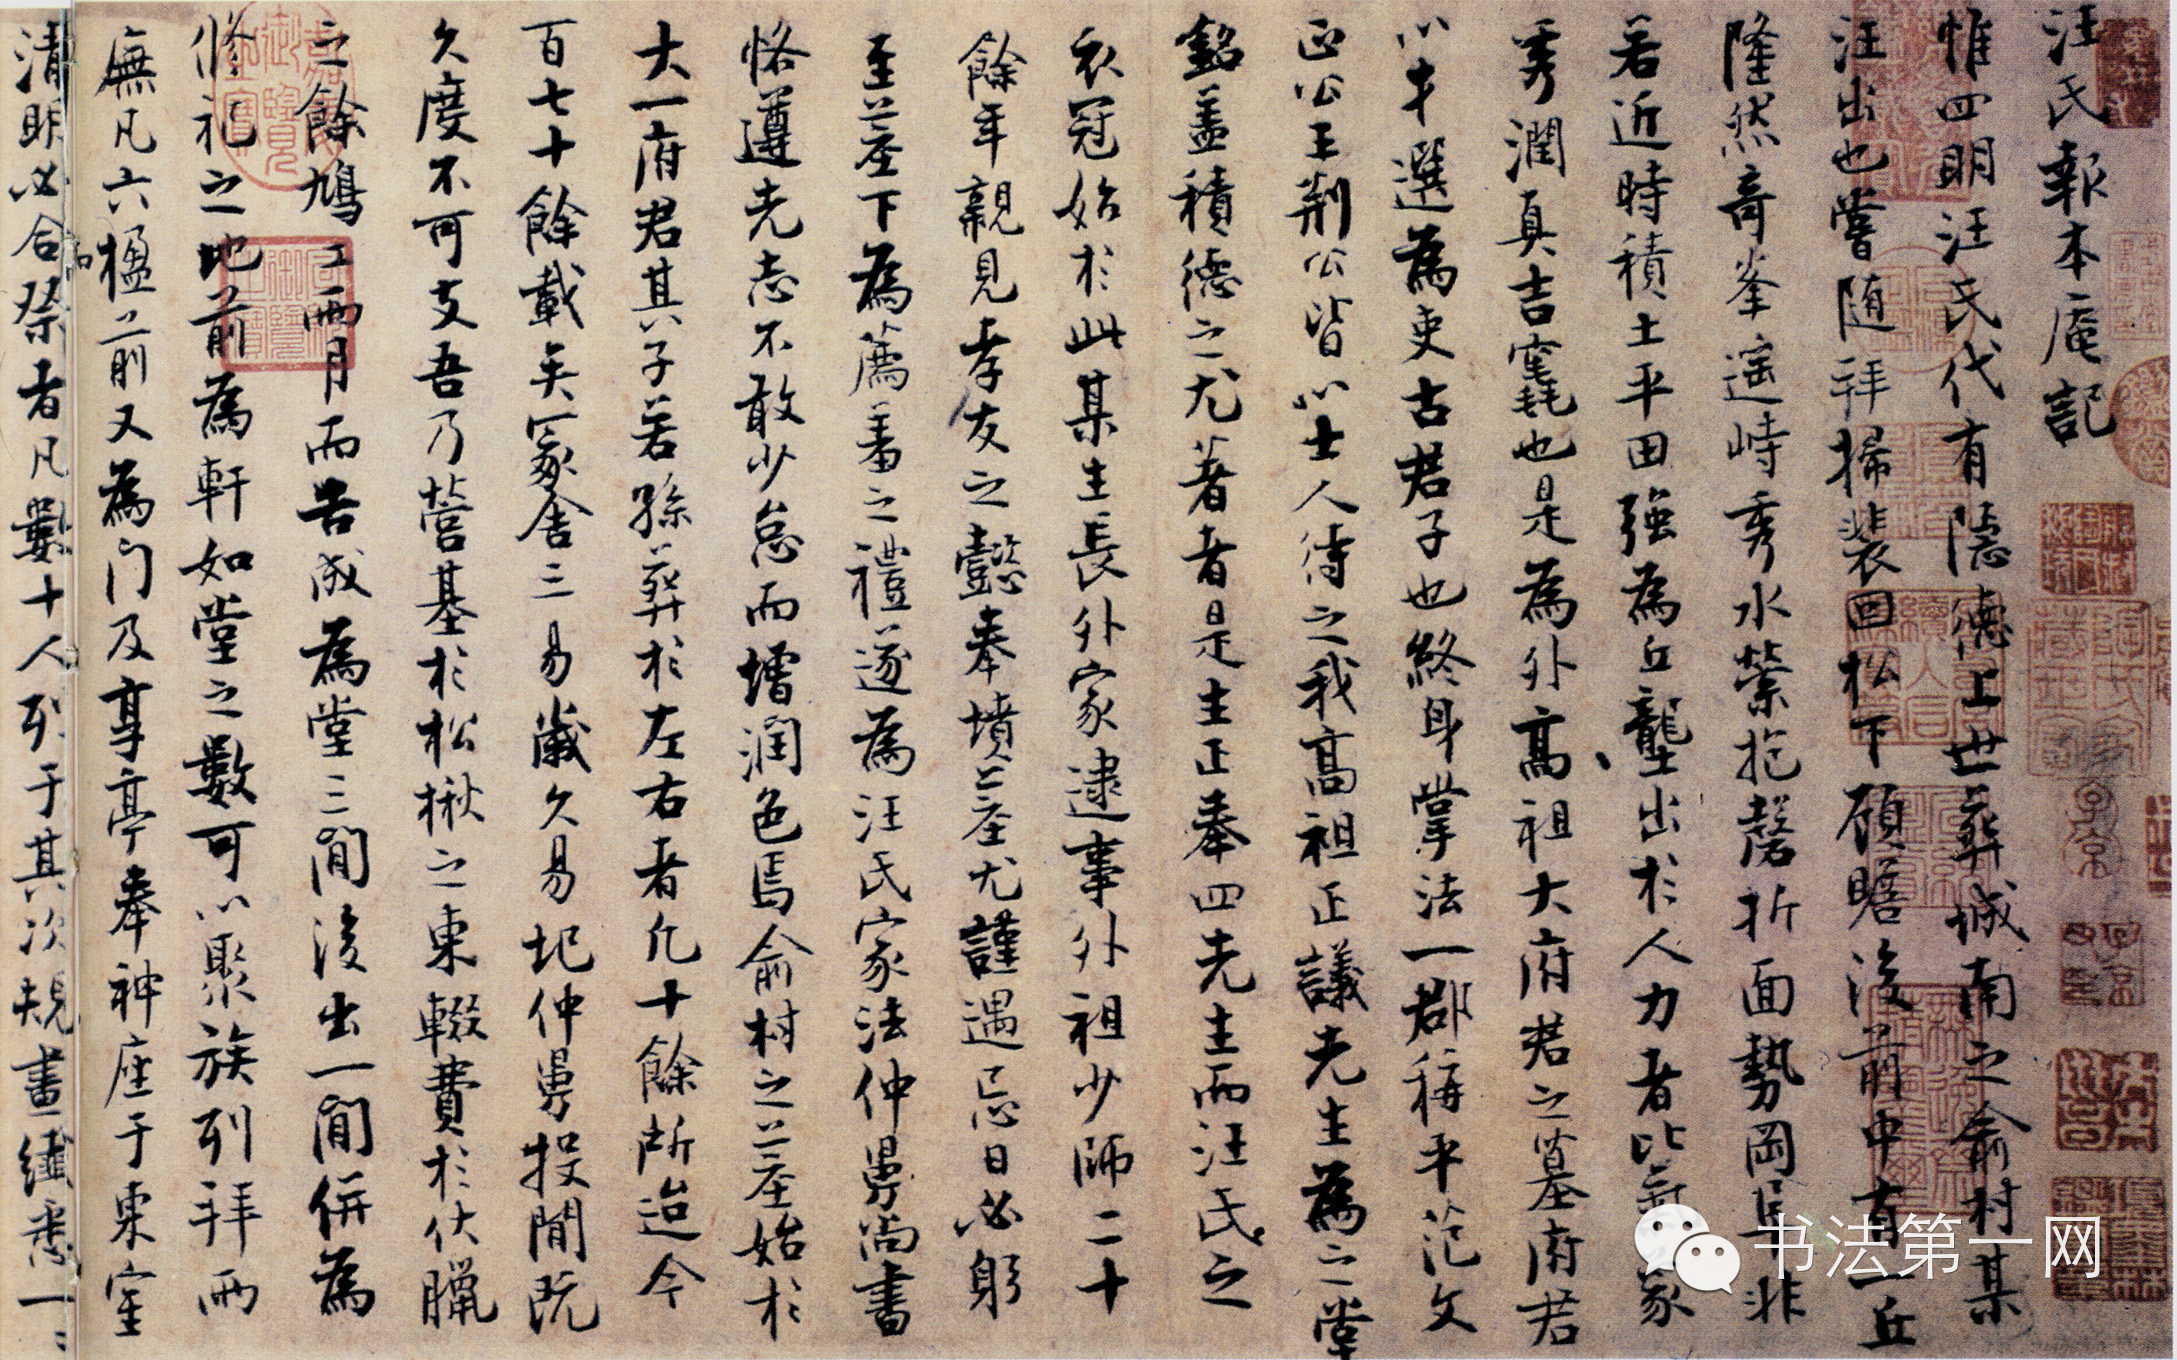 汪氏報本庵記
惟四明汪氏代有隱德上世葬城南之俞村某
汪出也嘗随拜掃裴回松下顧瞻後前中有一丘
隆然奇峯遥峙秀水縈抱磬折面勢岡阜非
若近時積土平田強為丘壟出於人力者比蓋冢
秀潤真吉竁也是為外高祖大府君之墓府君
以才選為吏古君子也終身掌法一郡稱平范文
正公王荆公皆以士人待之我高祖正議先生為之堂
銘盖積德之尤著者是生正奉四先生而汪氏之
衣冠始於此某生長外家逮事外祖少師二十
餘年親見孝友之懿奉墳墓尤謹遇忌日必躬
至墓下為薦羞之禮遂為汪氏家法仲舅尚書
恪遵先志不敢少怠而增润色焉俞村之墓始於
大一府君其子若孫葬於左右者凡十餘所迨今
百七十餘載矣冢舍三易歲久易圮仲舅投閒既
久度不可支吾乃營基於松楸之東輟費於伏臘
之餘鳩工兩月而告成為堂三間後出一間併為
修祀之地前為軒如堂之數可以聚族列拜兩
廡凡六楹前又為门及享亭奉神座于東室
清明必合祭者凡數十人列于其次規畫纖悉一一
书法第一网